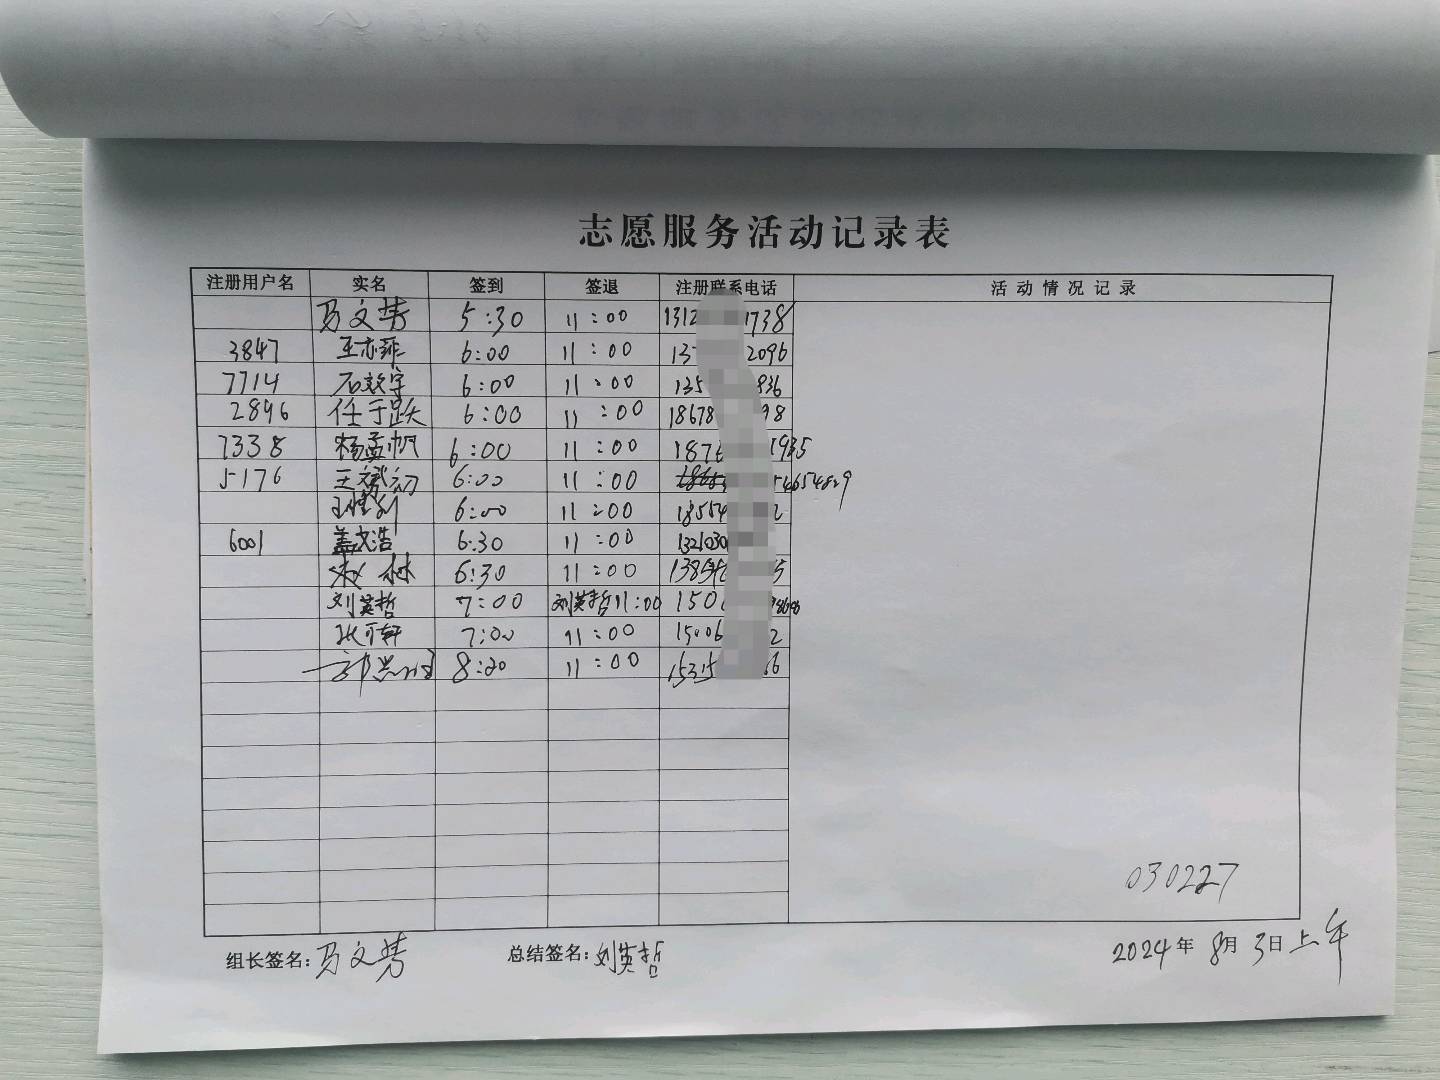 志愿服务活动记录表
注册用户名 实名 签到 签退 注册联系电话 活动情况记录
马文慧 5:30 11:00 1312 1738
3847 王 6:00 11:00 13 2096
7714 石 6:00 11:00 135 836
2896 任于跃 6:00 11:00 18678 98
7338 杨孟帆 6:00 11:00 187 1935
5176 王 初 6:00 11:00 54654829
王 6:00 11:00 18554 2
6001 盖文浩 6:30 11:00 132103
林 6:30 11:00 138 5
刘英哲 7:00 刘英哲 11:00 150
张 轩 7:00 11:00 15006 2
8:20 11:00 15315 66
030227
组长签名: 马文慧 总结签名: 刘英哲 2024年 8月 3日上午